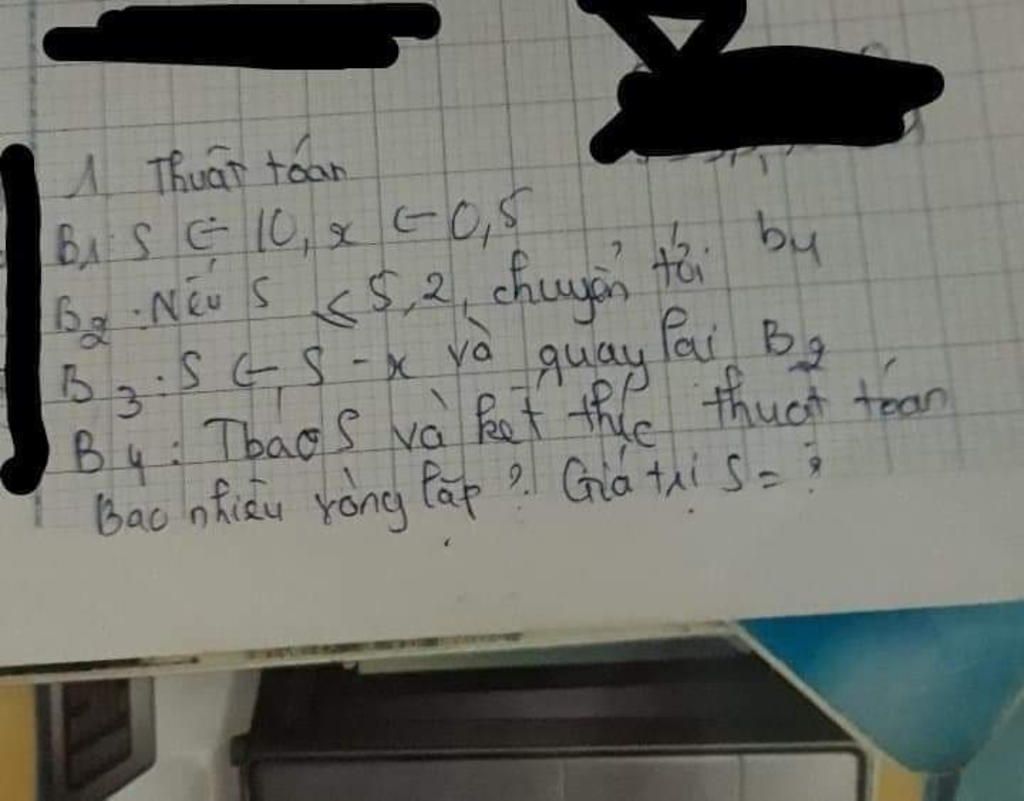 1 Thuật toán
B1: S ← 10, x ← 0,5
B2: Nếu S ≤ 5,2, chuyển tới b4
B3: S ← S - x và quay lại B2
B4: Tbáo S và kết thúc thuật toán
Bao nhiêu vòng lặp? Giá trị S = ?